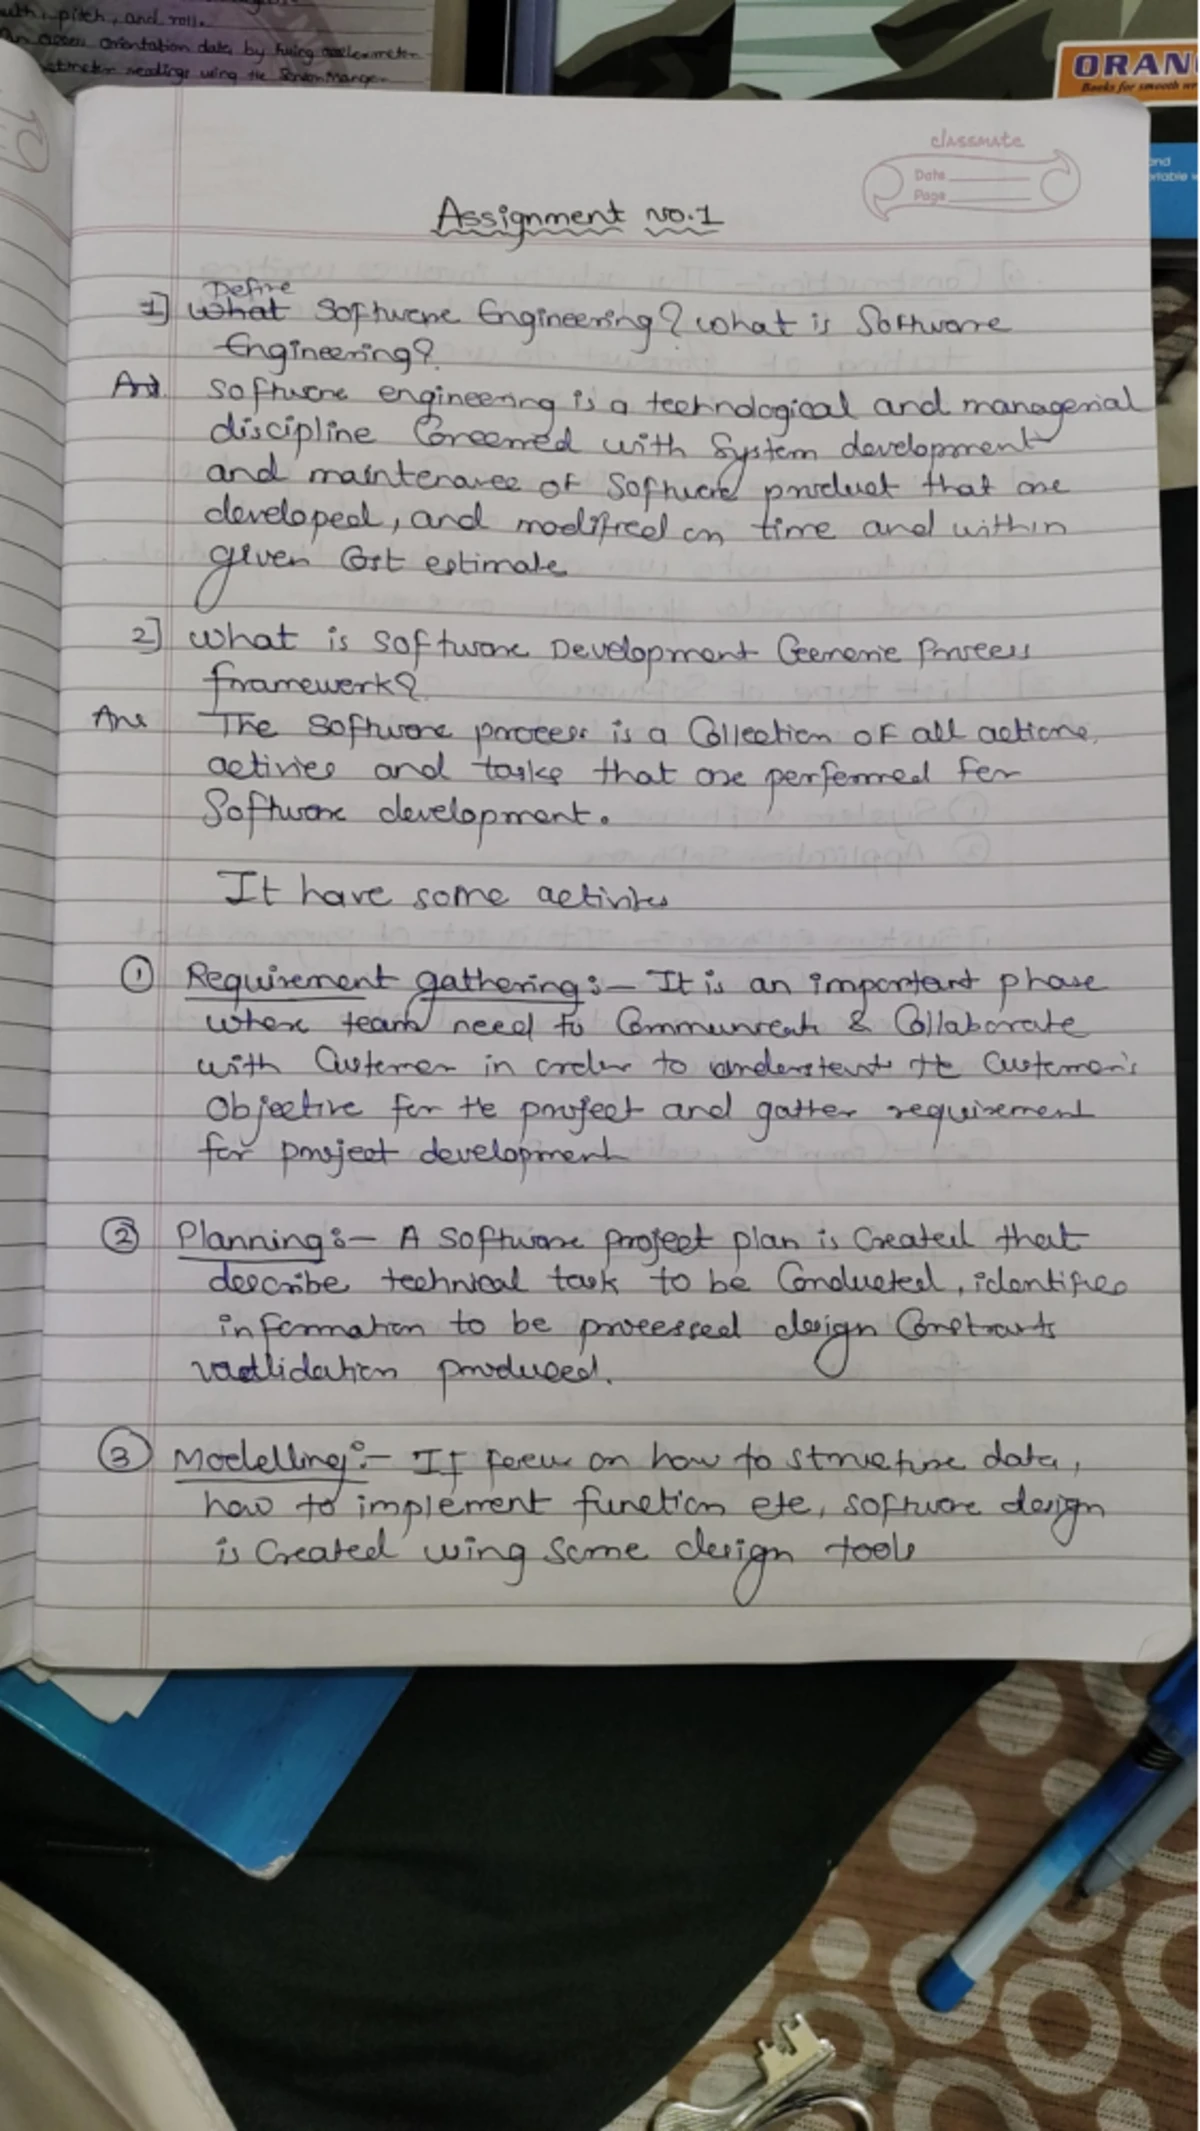 pitch, and roll.
orientation data by fusing
readings using the
ORAN
Books for smooth
and
rtable w
classmate
Date
Page
Assignment no.1
Define
1] What Software Engineering? What is Software
Engineering?
Ans. Software engineering is a technological and managerial
discipline Concerned with System development
and maintenance of Software product that are
developed, and modified on time and within
given Cost estimate
2] What is Software Development Generic Process
framework?
Ans The Software process is a Collection of all actions,
activies and tasks that are performed for
Software development.
It have some activites
① Requirement gathering:- It is an important phase
where team need to Communicate & Collaborate
with Customer in order to understand the Customer's
Objective for the project and gather requirement
for project development
② Planning:- A software project plan is Created that
describe technical task to be Conducted, identifies
information to be processed design Constraints
validation produced.
③ Modelling:- It focus on how to structure data,
how to implement function etc, software design
is Created using some design tools